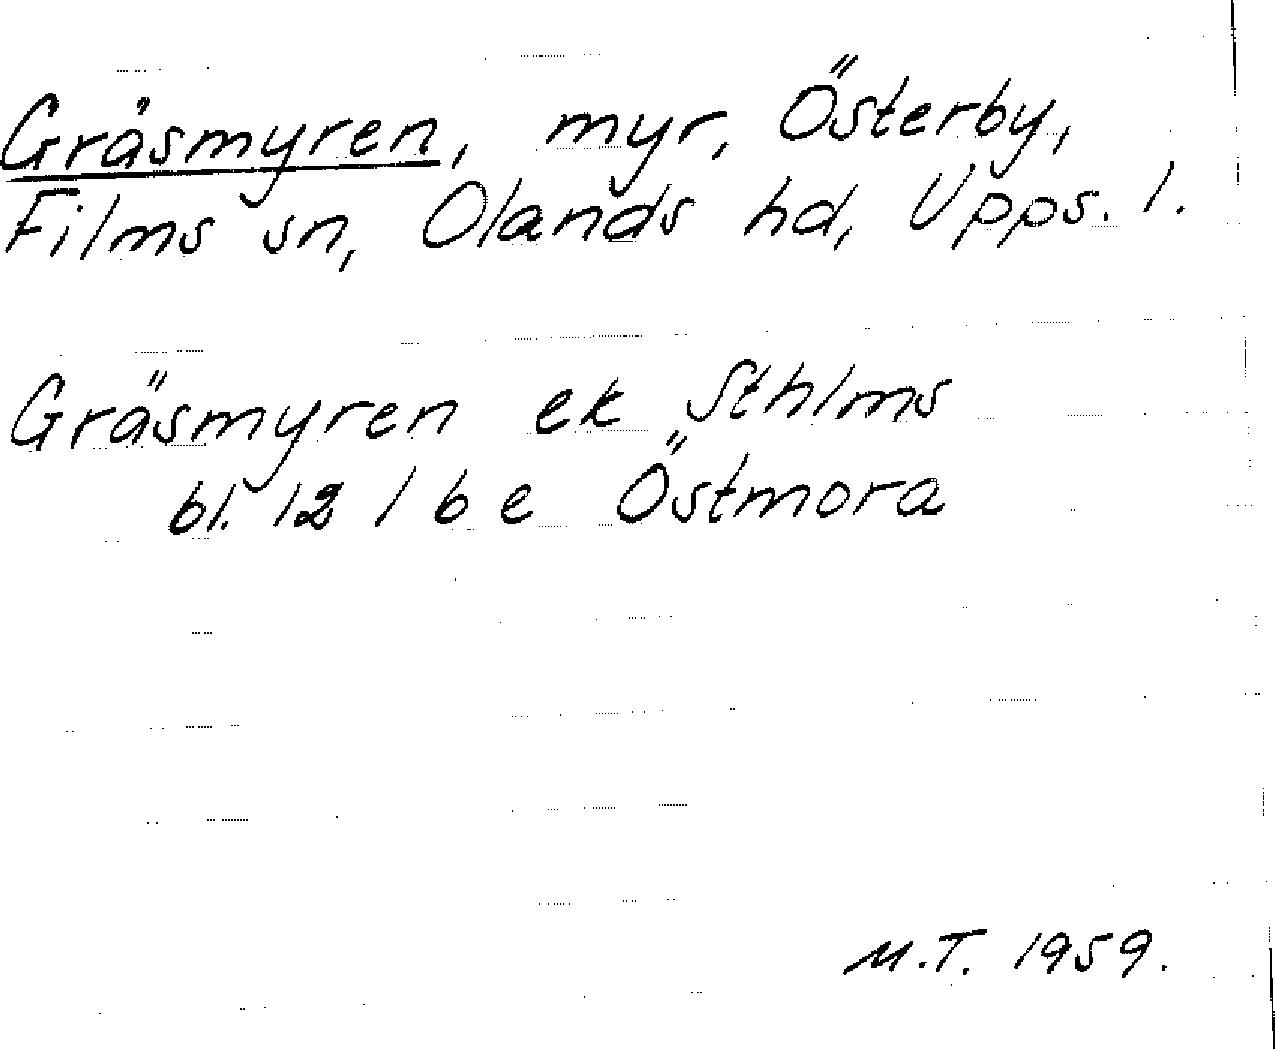 Gräsmyren, myr, Österby,
Films sn, Olands hd, Upps. l.
Gräsmyren ek Sthlms
bl. 12 I b e Östmora
M.T. 1959.